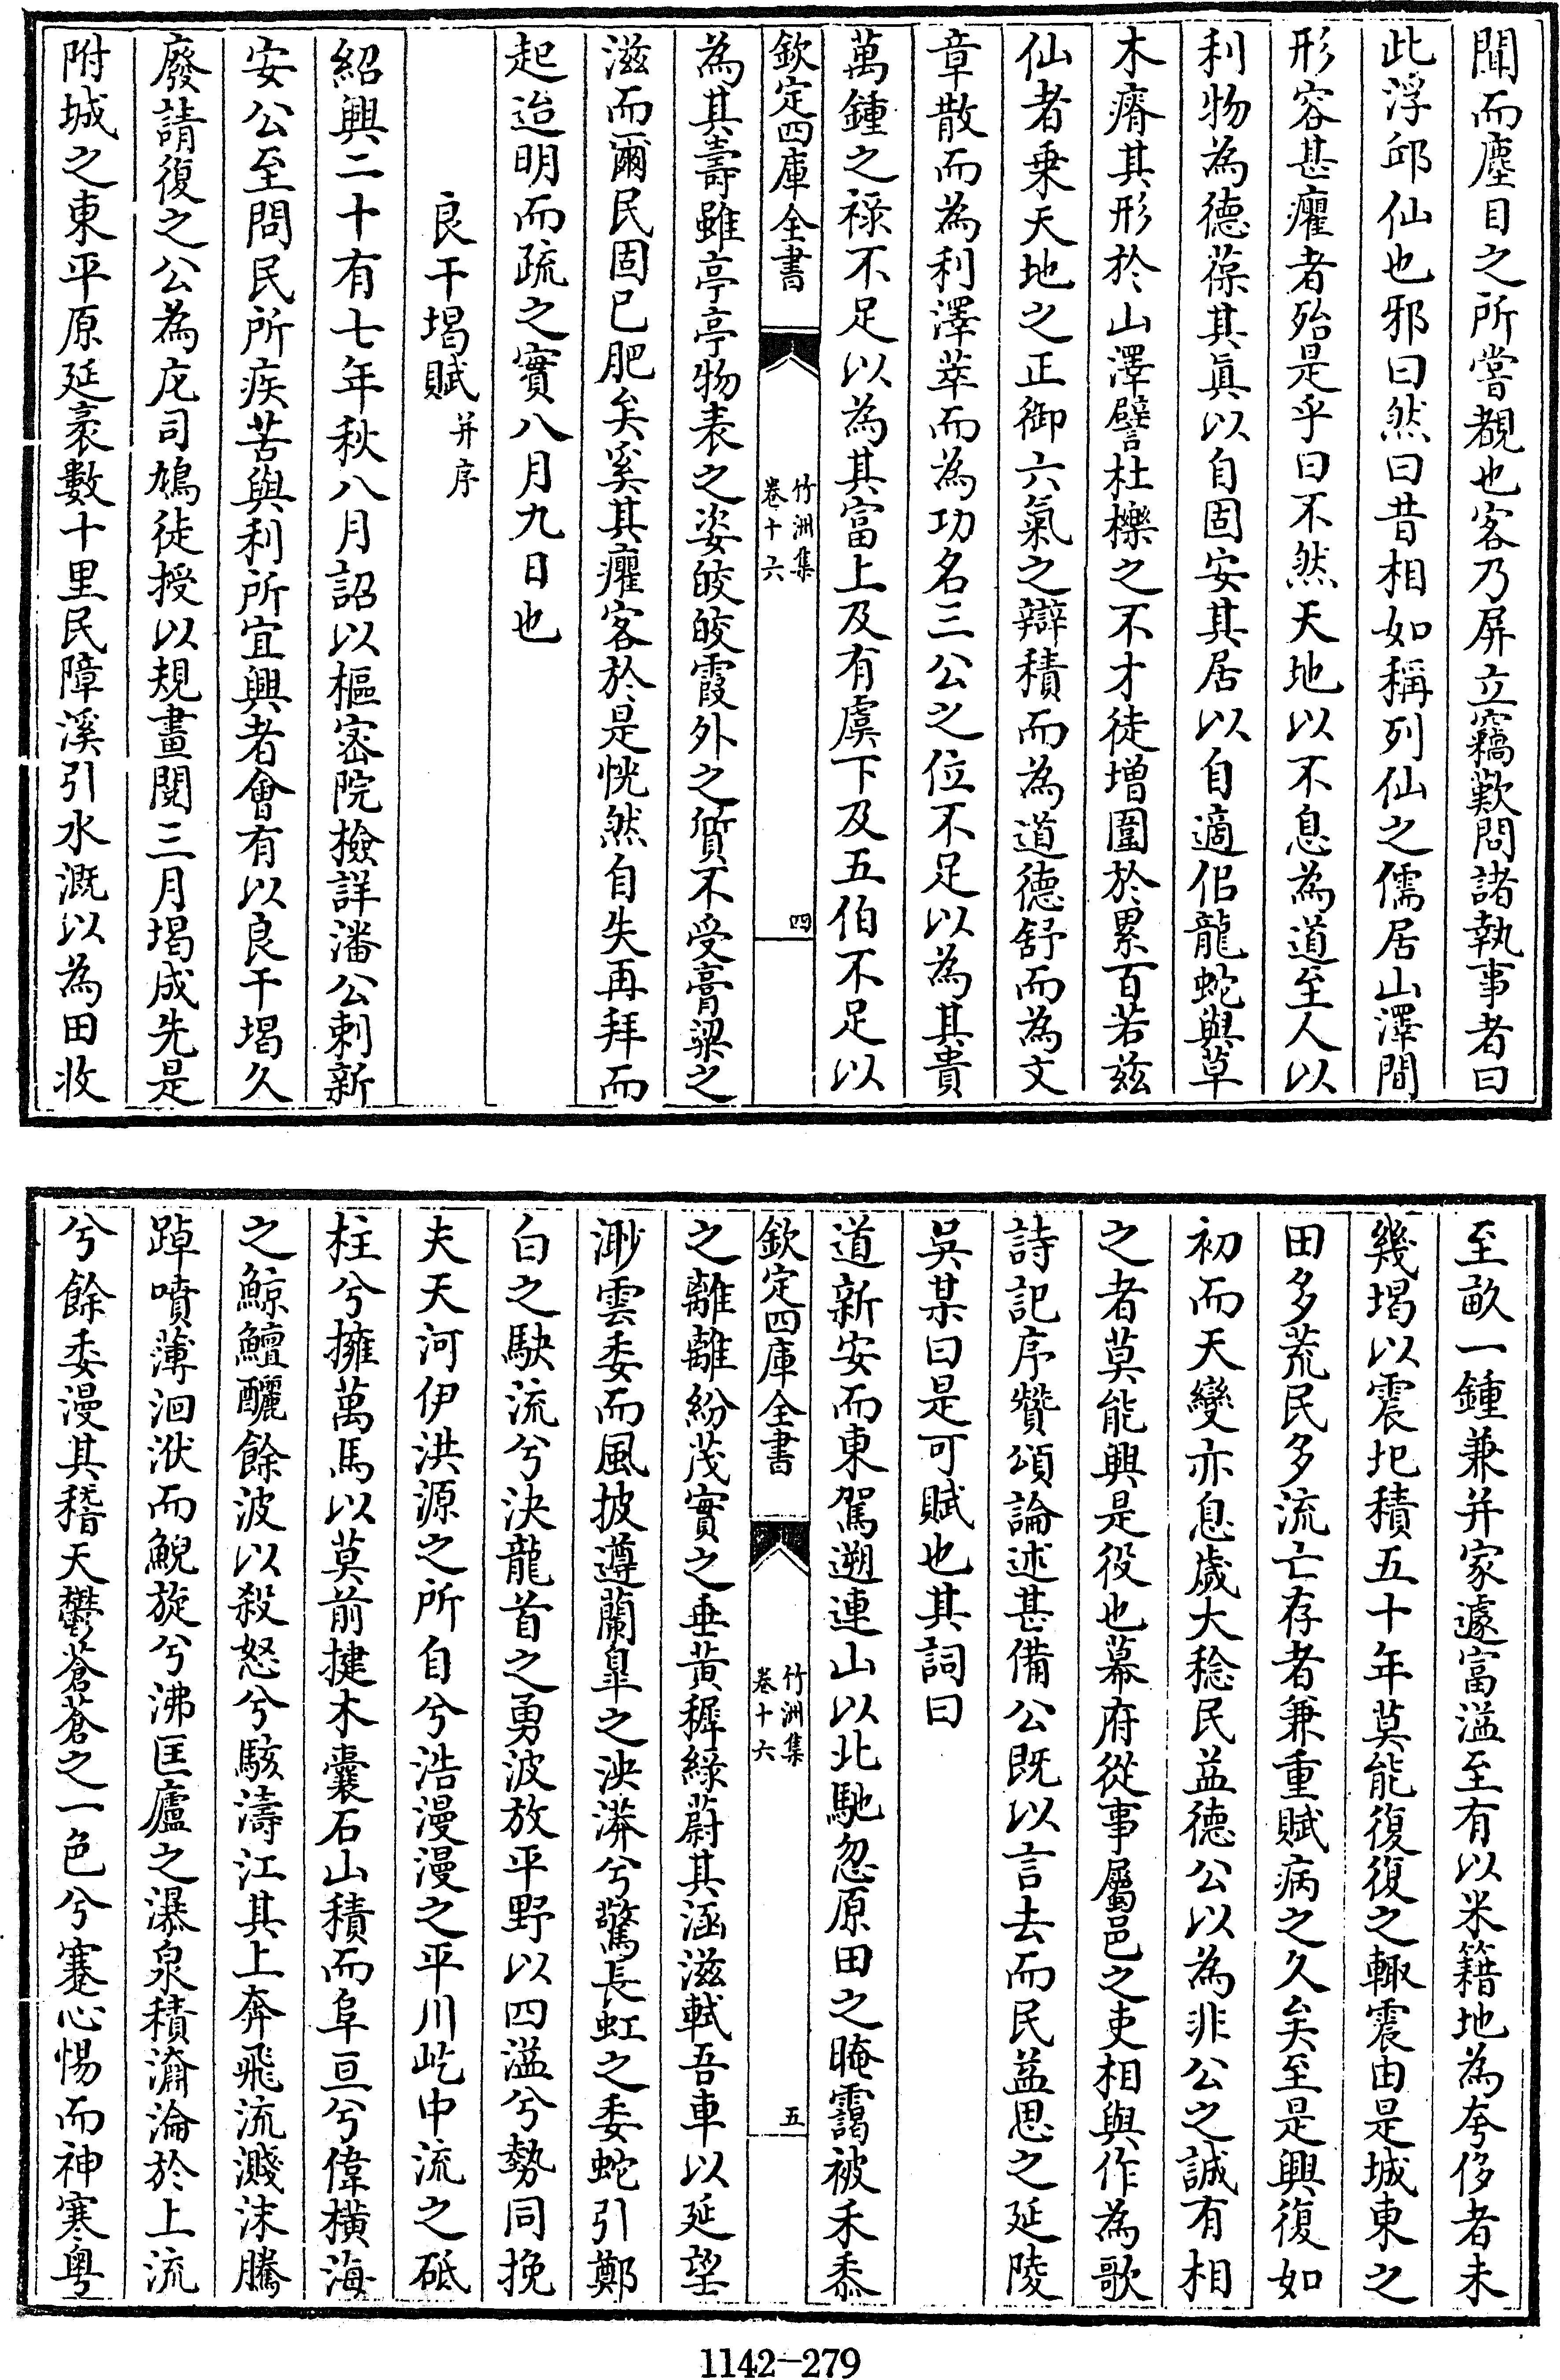 聞而塵目之所嘗覩也客乃屏立竊歎問諸執事者曰
此浮邱仙也邪曰然曰昔相如稱列仙之儒居山澤間
形容甚癯者殆是乎曰不然天地以不息為道至人以
利物為德葆其真以自固安其居以自適侶龍蛇與草
木瘠其形於山澤譬杜櫟之不才徒增圍於累百若兹
仙者乗天地之正御六氣之辯積而為道德舒而為文
章散而為利澤萃而為功名三公之位不足以為其貴
萬鍾之禄不足以為其富上及有虞下及五伯不足以
欽定四庫全書
竹洲集
卷十六
四
為其壽雖亭亭物表之姿皎皎霞外之質不受膏粱之
滋而爾民固已肥矣奚其癯客於是恍然自失再拜而
起迨明而疏之實八月九日也
良干堨賦并序
紹興二十有七年秋八月詔以樞宻院檢詳潘公刺新
安公至問民所疾苦與利所宜興者會有以良干堨久
廢請復之公為庀司鳩徒授以規畫閱三月堨成先是
附城之東平原延袤數十里民障溪引水溉以為田收
至畝一鍾兼并家遽富溢至有以米籍地為夸侈者未
幾堨以震圯積五十年莫能復復之輙震由是城東之
田多荒民多流亡存者兼重賦病之久矣至是興復如
初而天變亦息歲大稔民益德公以為非公之誠有相
之者莫能興是役也幕府從事屬邑之吏相與作為歌
詩記序贊頌論述甚備公既以言去而民益思之延陵
吳某曰是可賦也其詞曰
道新安而東駕遡連山以北馳忽原田之晻靄被禾黍
欽定四庫全書
竹洲集
卷十六
五
之離離紛茂實之垂黄穉緑蔚其涵滋軾吾車以延望
渺雲委而風披遵蘭臯之泱漭兮驚長虹之委蛇引鄭
白之駃流兮決龍首之勇波放平野以四溢兮勢同挽
夫天河伊洪源之所自兮浩漫漫之平川屹中流之砥
柱兮擁萬馬以莫前揵木囊石山積而阜亘兮偉横海
之鯨鱣釃餘波以殺怒兮駭濤江其上奔飛流濺沫騰
踔噴薄洄洑而鯢旋兮沸匡廬之瀑泉積瀹淪於上流
兮餘委漫其稽天鬱蒼蒼之一色兮蹇心惕而神寒粤
1142-279